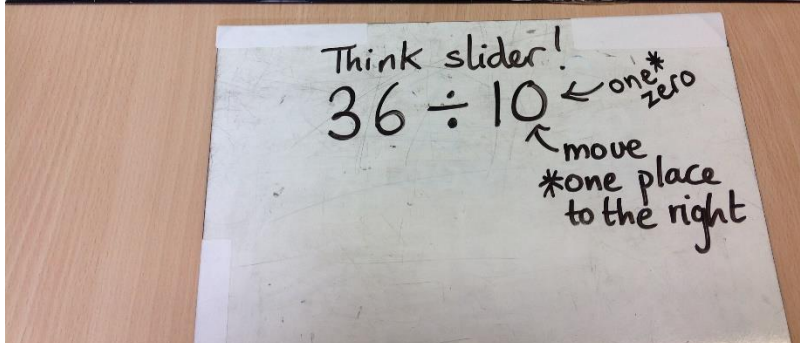 Think slider!
36 ÷ 10 ← one*
zero
↖ move
*one place
to the right